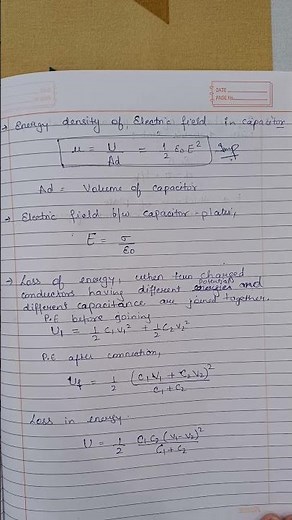 DATE
PAGE No.
→ Energy density of, Electric field in capacitor
u = U/Ad = 1/2 ε₀E² Imp
Ad = Volume of capacitor
→ Electric field b/w capacitor plates,
E = σ/ε₀
→ Loss of energy, when two charged
conductors having different potential and
different capacitance are joined together.
P.E before joining
U₁ = 1/2 C₁V₁² + 1/2 C₂V₂²
P.E after connection,
U_f = 1/2 (C₁V₁ + C₂V₂)²/C₁ + C₂
Loss in energy
U = 1/2 C₁C₂(V₁-V₂)²/C₁ + C₂